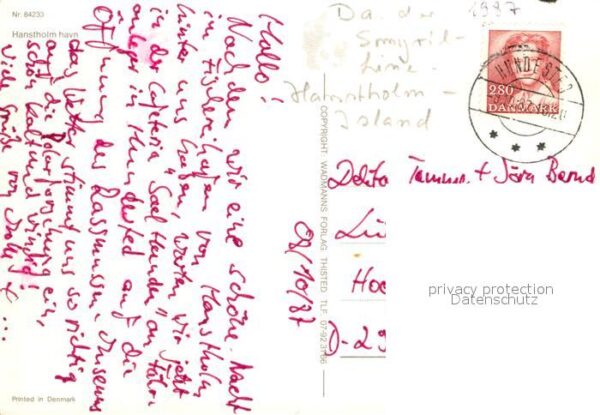 Nr. 84233
Hanstholm havn
Hallo!!
Nach dem wir eine schöne Nacht
im Fischereihafen von Hanstholm
hinter uns haben, warten wir jetzt
in der Cafeteria "Seel Hunden" am Fähr
anleger in Hundested auf die
Öffnung des Rasmussen Museums
das Wetter stimmt uns so richtig
auf die Polarforschung ein,
schön kalt und windig!
Viele Grüße von
08/10/87
Printed in Denmark
COPYRIGHT: WADMANNS FORLAG THISTED. TLF. 07-923156
1987
Da. du
Smyril-
Line-
Hanstholm -
Island
280
DANMARK
HUNDESTED
Tammo + Jörg Bernd
Hoc
D-29
privacy protection
Datenschutz